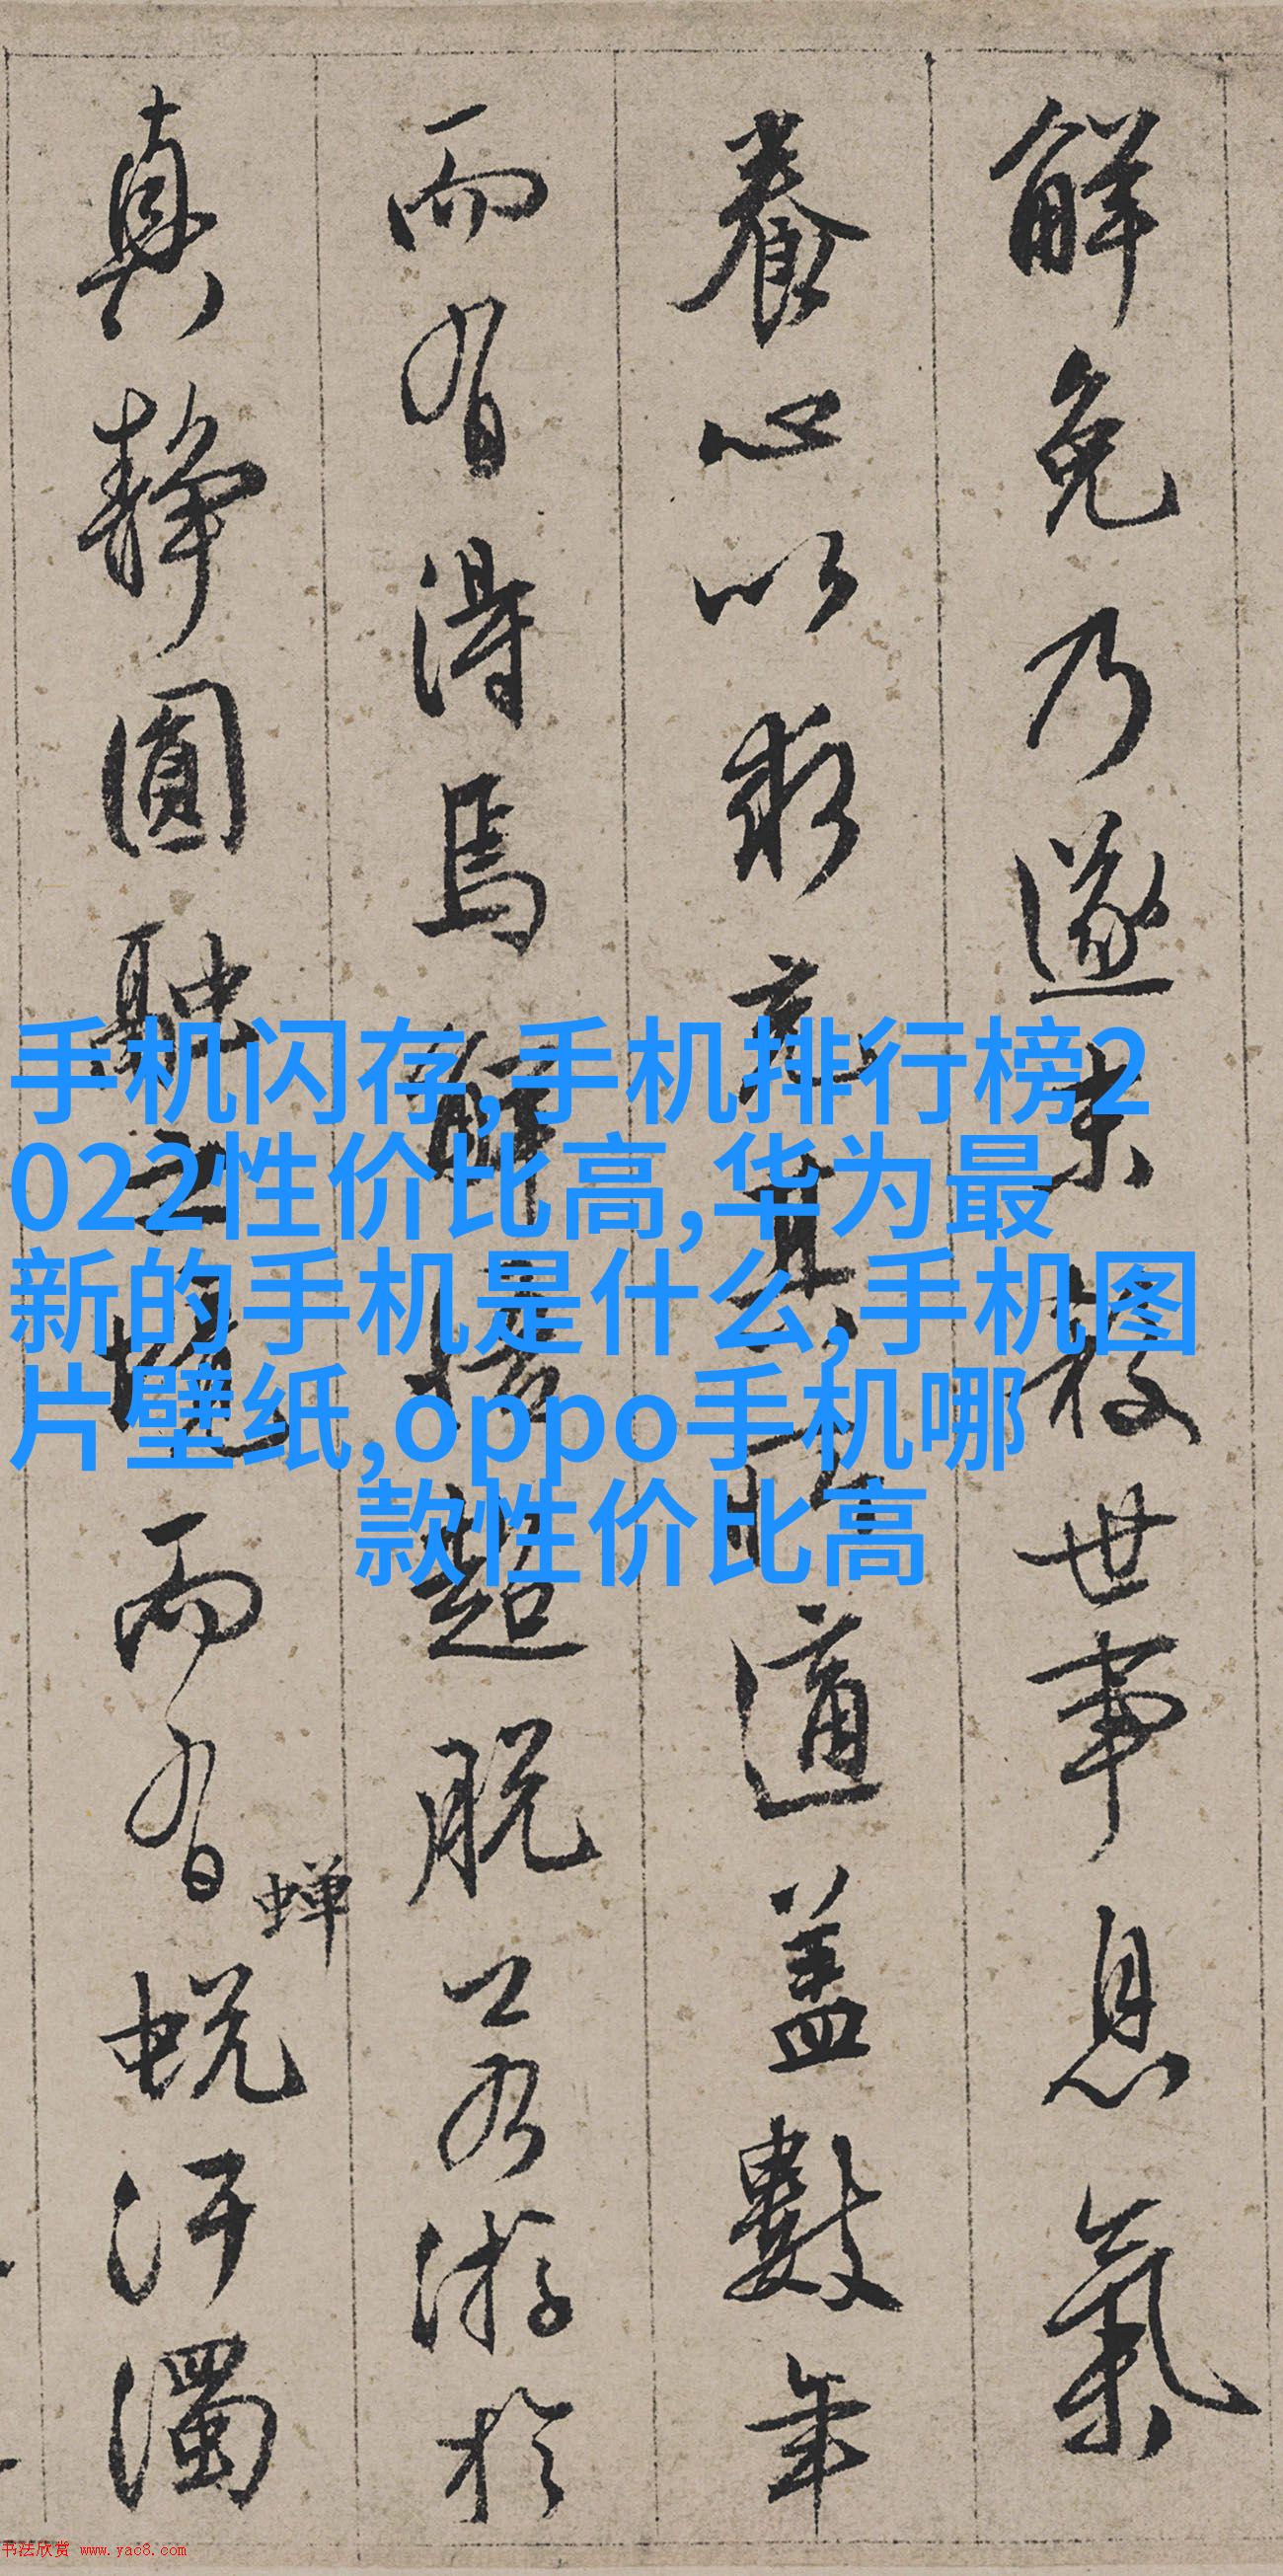 解免乃遂求放世事息氣
養心以求其適盖數年
而有得焉解悟超脱若游於
真靜圓融之境而有蟬蜕汙濁
手机闪存,手机排行榜2
022性价比高,华为最
新的手机是什么,手机图
片壁纸,oppo手机哪
款性价比高
书法欣赏 www.yac8.com